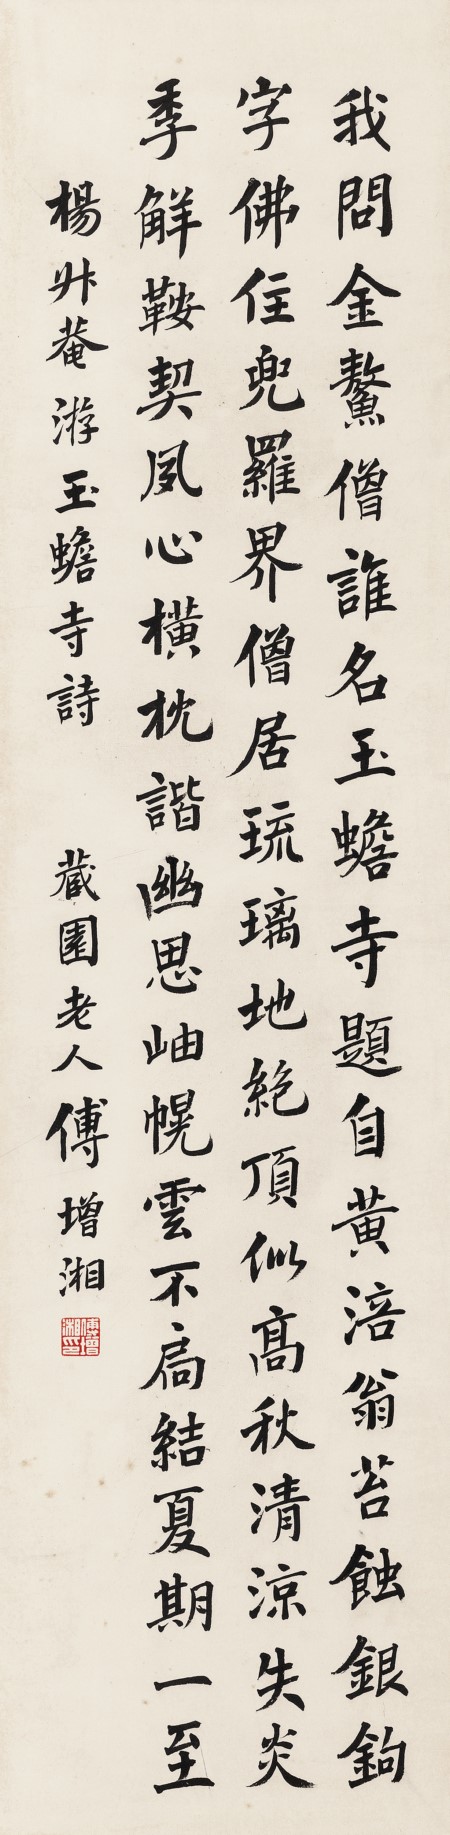 我問金鰲僧誰名玉蟾寺題自黃涪翁苔蝕銀鉤
字佛住兜羅界僧居琉璃地絕頂似高秋清涼失炎
季解鞍契夙心橫枕諧幽思岫幌雲不扃結夏期一至
楊升菴游玉蟾寺詩 藏園老人傅增湘
傅增湘印